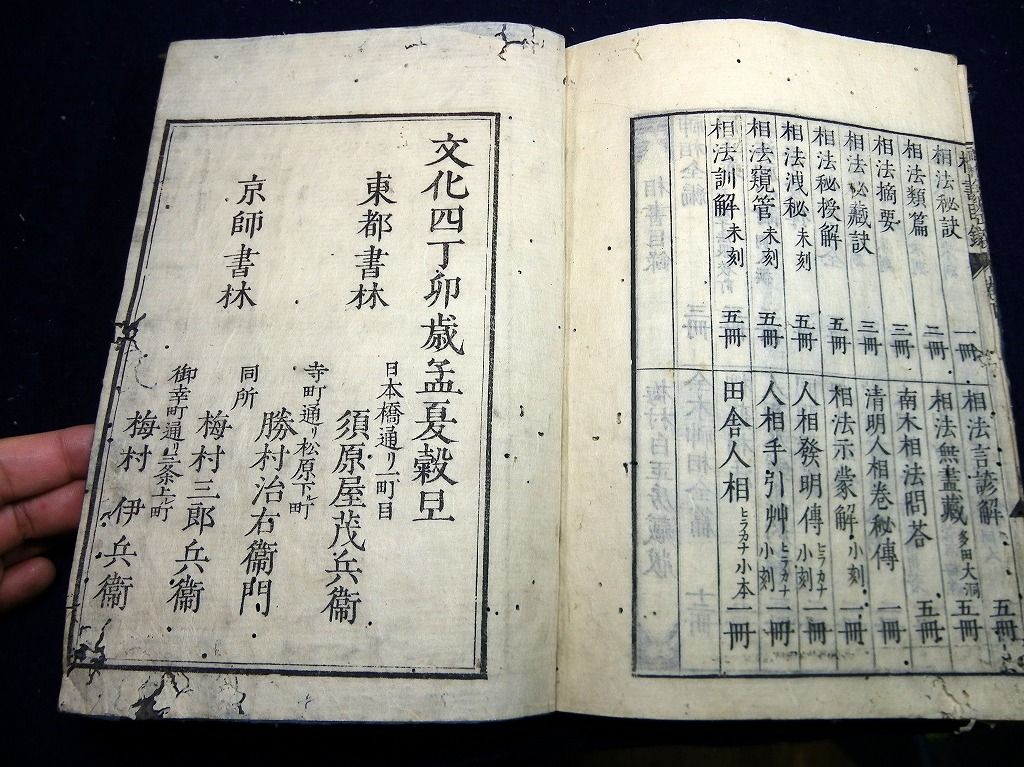 相法秘訣 一冊
相法類篇 二冊
相法摘要 三冊
相法必藏訣 三冊
相法秘授解 五冊
相法洩秘 未刻 五冊
相法窺管 未刻 五冊
相法訓解 未刻 五冊
相法言諺解 五冊
相法無盡藏 多田大洞 五冊
南木相法問答 五冊
清明人相卷秘傳 一冊
相法示蒙解 小刻 一冊
人相發明傳 ヒラカナ小刻 一冊
人相手引艸 ヒラカナ小刻 一冊
田舎人相 ヒラカナ小本 一冊
文化四丁卯歳孟夏穀旦
東都書林
日本橋通リ一町目
須原屋茂兵衞
京師書林
寺町通リ松原下ル町
勝村治右衞門
同所
梅村三郎兵衞
御幸町通リ三条上ル町
梅村伊兵衞